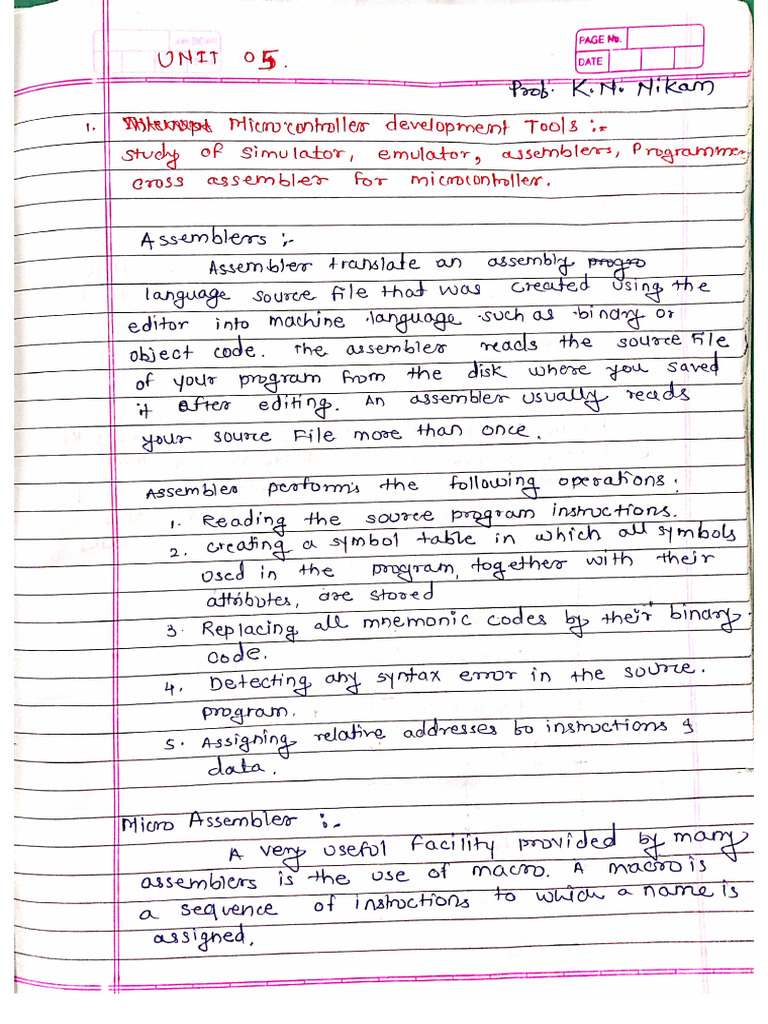 UNIT 05.
PAGE No.
DATE
Prob. K.N. Nikam
1. Microcontroller development Tools :-
study of simulator, emulator, assemblers, Programme
cross assembler for microcontroller.
Assemblers :-
Assembler translate an assembly progro
language source file that was created using the
editor into machine language such as binary or
object code. The assembler reads the source file
of your program from the disk where you saved
it after editing. An assembler usually reads
your source file more than once.
Assembler perform's the following operations :
1. Reading the source program instructions.
2. creating a symbol table in which all symbols
used in the program, together with their
attributes, are stored
3. Replacing all mnemonic codes by their binary
code.
4. Detecting any syntax error in the source.
program.
5. Assigning relative addresses to instructions &
data.
Micro Assembler :-
A very useful facility provided by many
assemblers is the use of macro. A macro is
a sequence of instructions to which a name is
assigned.